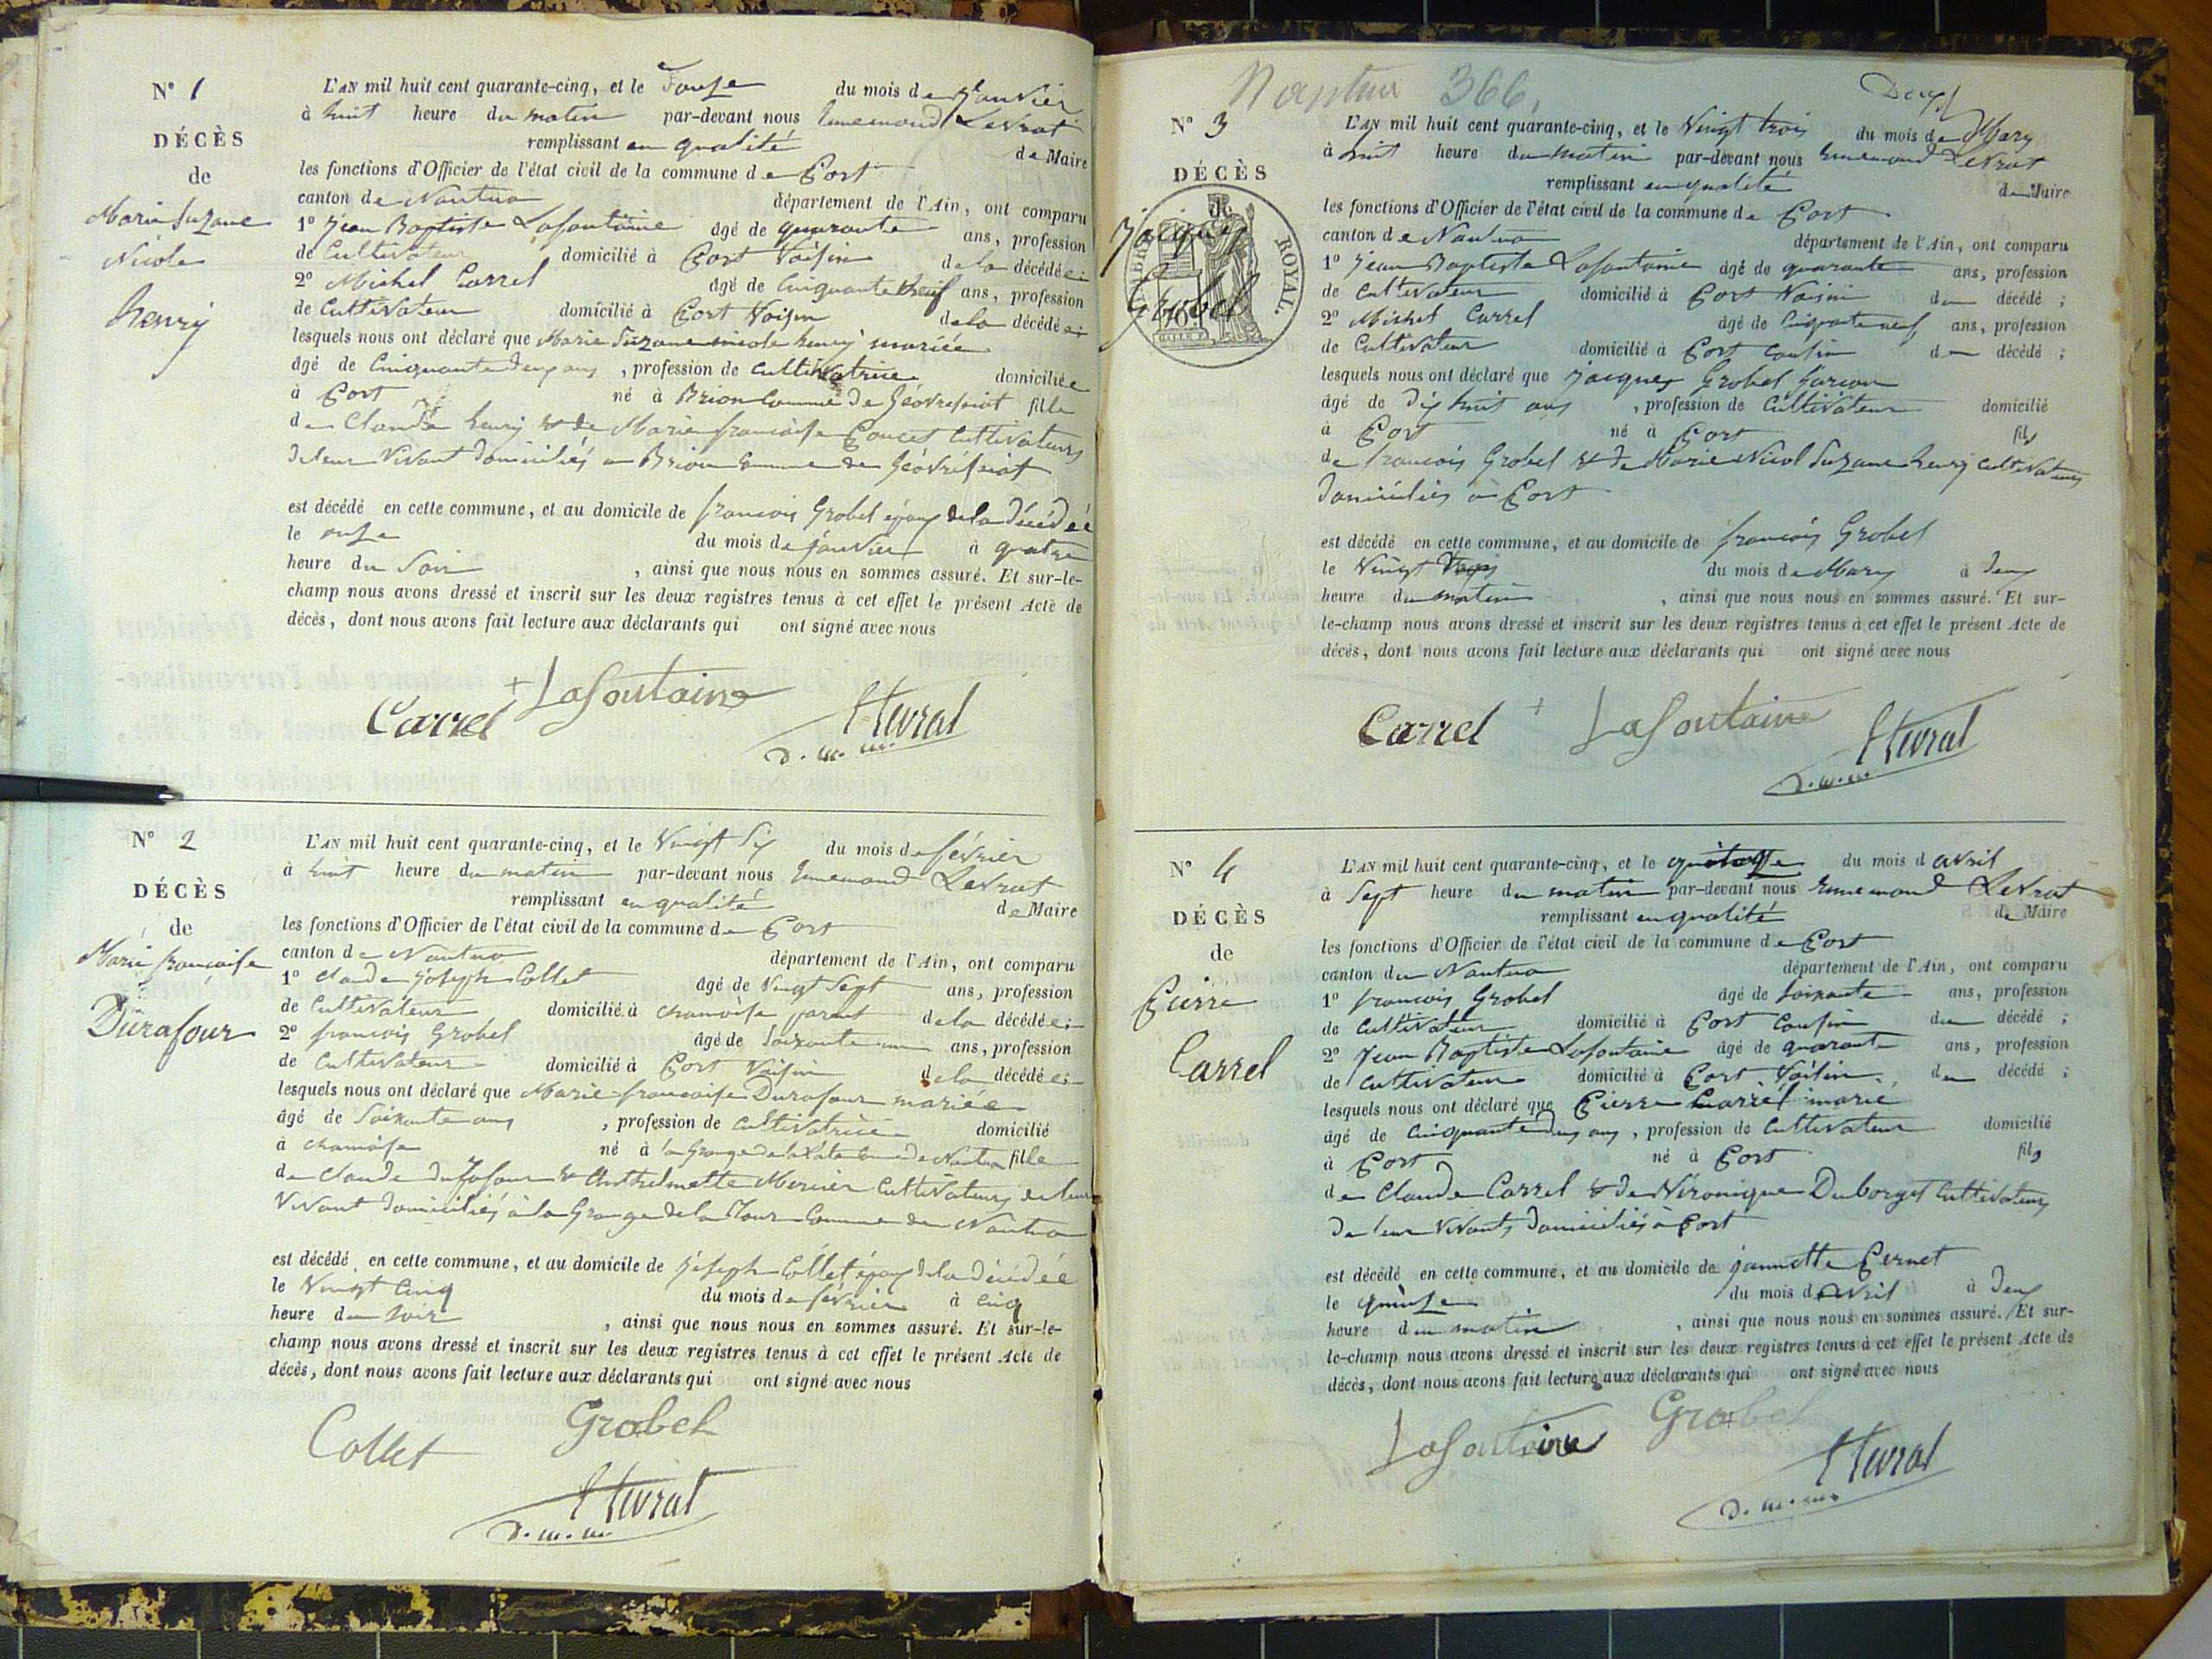 N° 1
DÉCÈS
de
Marie Suzane
Nicole
henry
L'AN mil huit cent quarante-cinq, et le Douze du mois de Janvier
à huit heure du matin par-devant nous Ennemond Levrat
remplissant en qualité de Maire
les fonctions d'Officier de l'état civil de la commune de Port
canton de Nantua département de l'Ain, ont comparu
1° Jean Baptiste Lafontaine âgé de quarante ans, profession
de Cultivateur domicilié à Port Voisin de la décédée
2° Michel Carrel âgé de Cinquante neuf ans, profession
de Cultivateur domicilié à Port Voisin de la décédée
lesquels nous ont déclaré que Marie Suzane nicole henry mariée
âgé de Cinquante deux ans, profession de Cultivatrice domiciliée
à Port né à Brion Commune de Géovreissiat fille
de Claude henry & de Marie françoise Poncet Cultivateurs
de leur Vivant domiciliés a Brion Commune de Géovreissiat
est décédé en cette commune, et au domicile de françois Grobel époux de la décédée
le onze du mois de janvier à quatre
heure du Soir, ainsi que nous nous en sommes assuré. Et sur-le-
champ nous avons dressé et inscrit sur les deux registres tenus à cet effet le présent Acte de
décès, dont nous avons fait lecture aux déclarants qui ont signé avec nous
Carrel + Lafontaine
Levrat
d. m. m.
N° 2
DÉCÈS
de
Marie françoise
Durafour
L'AN mil huit cent quarante-cinq, et le Vingt Six du mois de février
à huit heure du matin par-devant nous Ennemond Levrat
remplissant en qualité de Maire
les fonctions d'Officier de l'état civil de la commune de Port
canton de Nantua département de l'Ain, ont comparu
1° Claude joseph Collet âgé de Vingt Sept ans, profession
de Cultivateur domicilié à chamoise parent de la décédée
2° françois Grobel âgé de Soixante ans, profession
de Cultivateur domicilié à Port Voisin de la décédée
lesquels nous ont déclaré que Marie françoise Durafour mariée
âgé de Soixante ans, profession de Cultivatrice domicilié
à chamoise né à la Grange de la Commune de Nantua fille
de Claude durafour & Anthelmette Mercier Cultivateurs de leur
Vivant domiciliés à la Grange de la Commune de Nantua
est décédé en cette commune, et au domicile de joseph Collet époux de la décédée
le Vingt Cinq du mois de février à cinq
heure du soir, ainsi que nous nous en sommes assuré. Et sur-le-
champ nous avons dressé et inscrit sur les deux registres tenus à cet effet le présent Acte de
décès, dont nous avons fait lecture aux déclarants qui ont signé avec nous
Collet Grobel
Levrat
d. m. m.
Nantua 366.
Deux
N° 3
DÉCÈS
jacques
Grobel
ROYAL.
L'AN mil huit cent quarante-cinq, et le Vingt trois du mois de Mars
à huit heure du matin par-devant nous Ennemond Levrat
remplissant en qualité de Maire
les fonctions d'Officier de l'état civil de la commune de Port
canton de Nantua département de l'Ain, ont comparu
1° Jean Baptiste Lafontaine âgé de quarante ans, profession
de Cultivateur domicilié à Port Voisin du décédé ;
2° Michel Carrel âgé de Cinquante neuf ans, profession
de Cultivateur domicilié à Port Cousin du décédé ;
lesquels nous ont déclaré que jacques Grobel Garçon
âgé de dix huit ans, profession de Cultivateur domicilié
à Port né à Port fils
de françois Grobel & de Marie Nicol Suzane henry cultivateurs
Domiciliés à Port
est décédé en cette commune, et au domicile de françois Grobel
le Vingt du mois de Mars à deux
heure du matin, ainsi que nous nous en sommes assuré. Et sur-
le-champ nous avons dressé et inscrit sur les deux registres tenus à cet effet le présent Acte de
décès, dont nous avons fait lecture aux déclarants qui ont signé avec nous
Carrel + Lafontaine
Levrat
d. m. m.
N° 4
DÉCÈS
de
Pierre
Carrel
L'AN mil huit cent quarante-cinq, et le du mois d avril
à Sept heure du matin par-devant nous Ennemond Levrat
remplissant en qualité de Maire
les fonctions d'Officier de l'état civil de la commune de Port
canton de Nantua département de l'Ain, ont comparu
1° françois Grobel âgé de Soixante ans, profession
de Cultivateur domicilié à Port Cousin du décédé ;
2° Jean Baptiste Lafontaine âgé de quarante ans, profession
de Cultivateur domicilié à Port Voisin du décédé ;
lesquels nous ont déclaré que Pierre Carrel marié
âgé de Cinquante deux ans, profession de Cultivateur domicilié
à Port né à Port fils
de Claude Carrel & de Véronique Duborget Cultivateurs
de leur Vivants domiciliés à Port
est décédé en cette commune, et au domicile de jannette Pernet
le quinze du mois d avril à deux
heure du matin, ainsi que nous nous en sommes assuré. Et sur-
le-champ nous avons dressé et inscrit sur les deux registres tenus à cet effet le présent Acte de
décès, dont nous avons fait lecture aux déclarants qui ont signé avec nous
Lafontaine Grobel
Levrat
d. m. m.